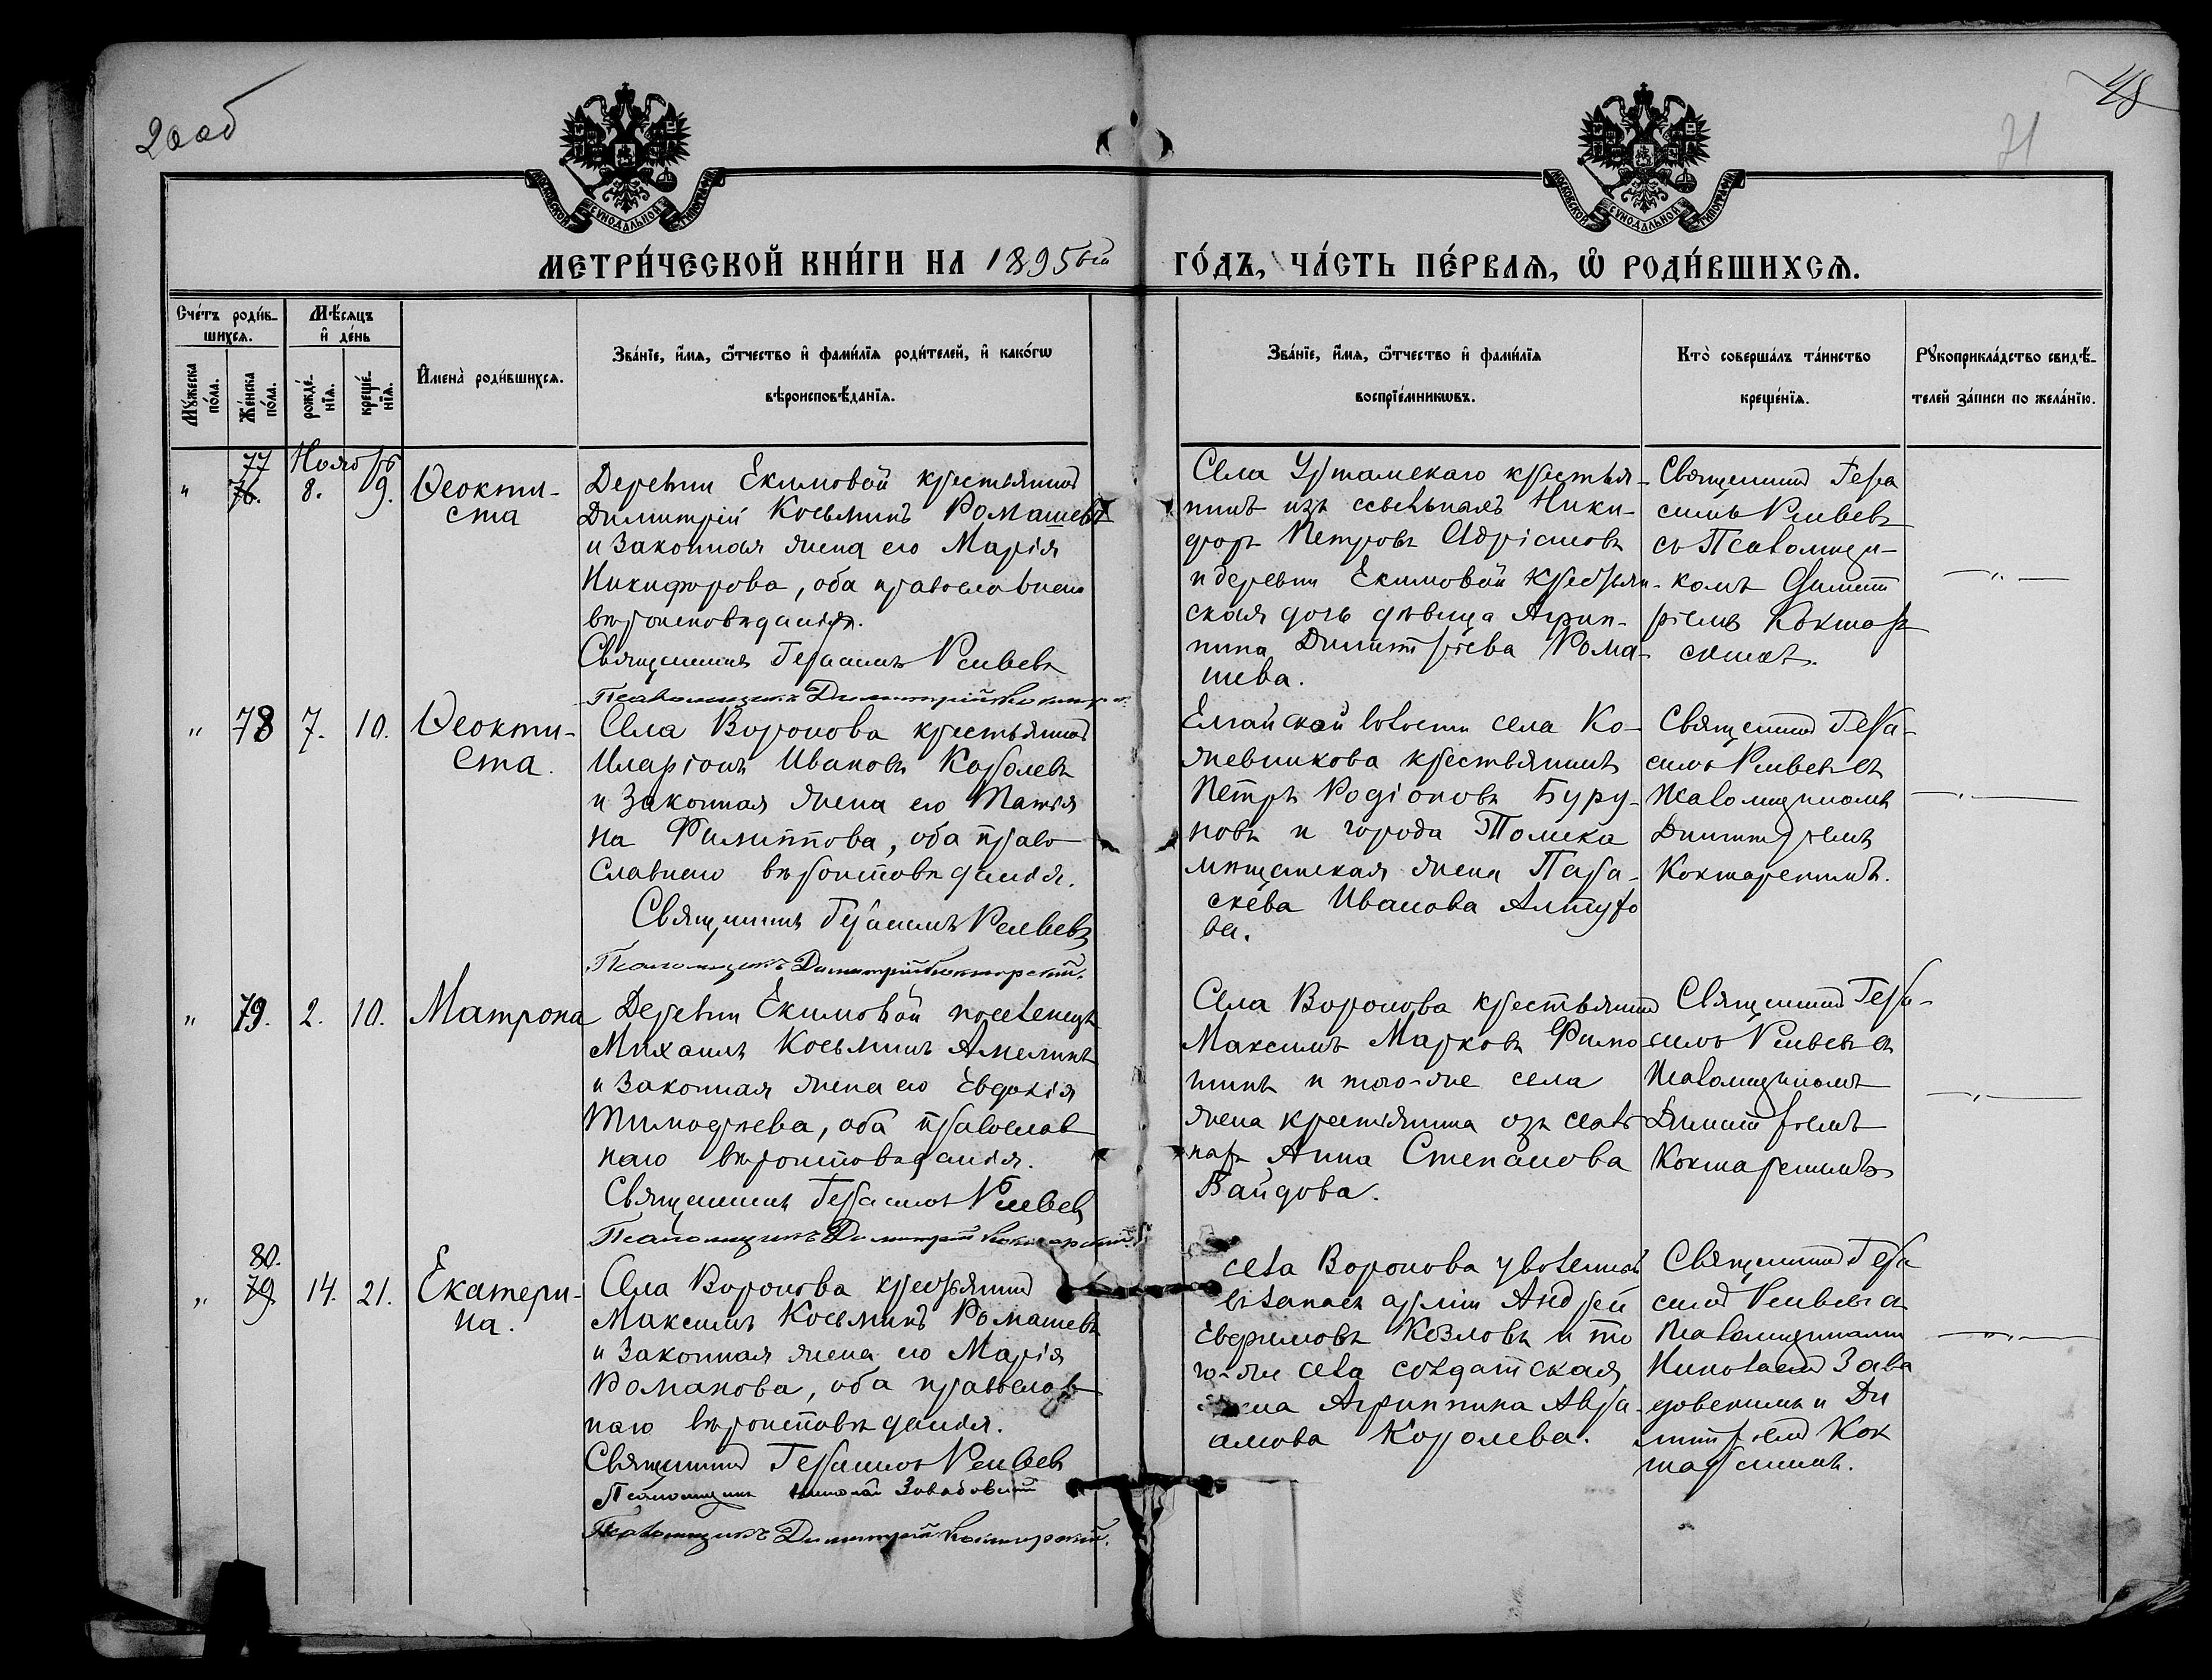 48
71
МОСКОВСКОЙ СУНОДАЛЬНОЙ ТИПОГРАФІИ
МОСКОВСКОЙ СУНОДАЛЬНОЙ ТИПОГРАФІИ
МЕТРИ́ЧЕСКОЙ КНИ́ГИ НА 1895ый ГО́ДЪ, ЧА́СТЬ ПЕ́РВАѦ, Ѽ РОДИ́ВШИХСѦ.
Сче́тъ роди́в-
шихсѧ.
Мѣ́сѧцъ
и҆ де́нь
Мꙋ́жеска по́ла.
Же́нска по́ла.
рожде́-нїѧ.
креще́-нїѧ.
И҆мена̀ роди́вшихсѧ.
Зва́нїе, и҆́мѧ, ѻ҆́тчество и҆ фами́лїѧ роди́телей, и҆ како́гѡ
вѣроисповѣ́данїѧ.
Зва́нїе, и҆́мѧ, ѻ҆́тчество и҆ фами́лїѧ
воспрїе́мникѡвъ.
Кто̀ соверша́лъ та́инство
креще́нїѧ.
Рꙋкоприкла́дство свидѣ́-
телей за́писи по жела́нїю.
77 Ноябрь
" 76. 8. 9. Ѳеокти-
ста
Деревни Екимовой крестьянинъ
Димитрій Косьминъ Ромашевъ
и законная жена его Марія
Никифорова, оба православнаго
вѣроисповѣданія.
Священникъ Герасимъ
Псаломщикъ Димитрій
Села Уртамскаго крестья-
нинъ изъ ссыльныхъ Ники-
форъ Петровъ Адріановъ
и деревни Екимовой крестьян-
ская дочь дѣвица Агрип-
пина Димитріева Рома-
шева.
Священникъ Гера
симъ
съ Псаломщи-
комъ Димит
ріемъ Кокшар
скимъ.
" 78 7. 10. Ѳеокти-
ста.
Села Воронова крестьянинъ
Иларіонъ Ивановъ Королевъ
и законная жена его Татія
на Филиппова, оба право
славнаго вѣроисповѣданія.
Священникъ Герасимъ
Псаломщикъ Димитрій Кокшарскій.
Елгайской волости села Ко-
жевникова крестьянинъ
Петръ Родіоновъ Буру-
новъ и города Томска
мѣщанская жена Пара-
скева Иванова Алтухо
ва.
Священникъ Гера-
симъ съ
Псаломщикомъ
Димитріемъ
Кокшарскимъ.
" 79. 2. 10. Матрона
Деревни Екимовой поселенецъ
Михаилъ Косьминъ Амелинъ
и законная жена его Евдокія
Тимофеева, оба православ
наго вѣроисповѣданія.
Священникъ Герасимъ
Псаломщикъ Димитрій Кокшарскій.
Села Воронова крестьянинъ
Максимъ Марковъ
и того-же села
жена крестьянина изъ
Анна Степанова
Байдова.
Священникъ Гера-
симъ съ
Псаломщикомъ
Димитріемъ
Кокшарскимъ
80.
" 79. 14. 21. Екатери-
на.
Села Воронова крестьянинъ
Максимъ Косьминъ Ромашевъ
и законная жена его Марія
Романова, оба православ
наго вѣроисповѣданія.
Священникъ Герасимъ
Псаломщикъ Николай Завадовскій
Псаломщикъ Димитрій Кокшарскій.
села Воронова уволенный
въ запасъ арміи Андрей
Евфимовъ Козловъ и то
го-же села солдатская
жена Агриппина Авра-
амова Королева.
Священникъ Гера
симъ съ
Псаломщиками
Николаемъ Зава
довскимъ и Ди
митріемъ Кок
шарскимъ.